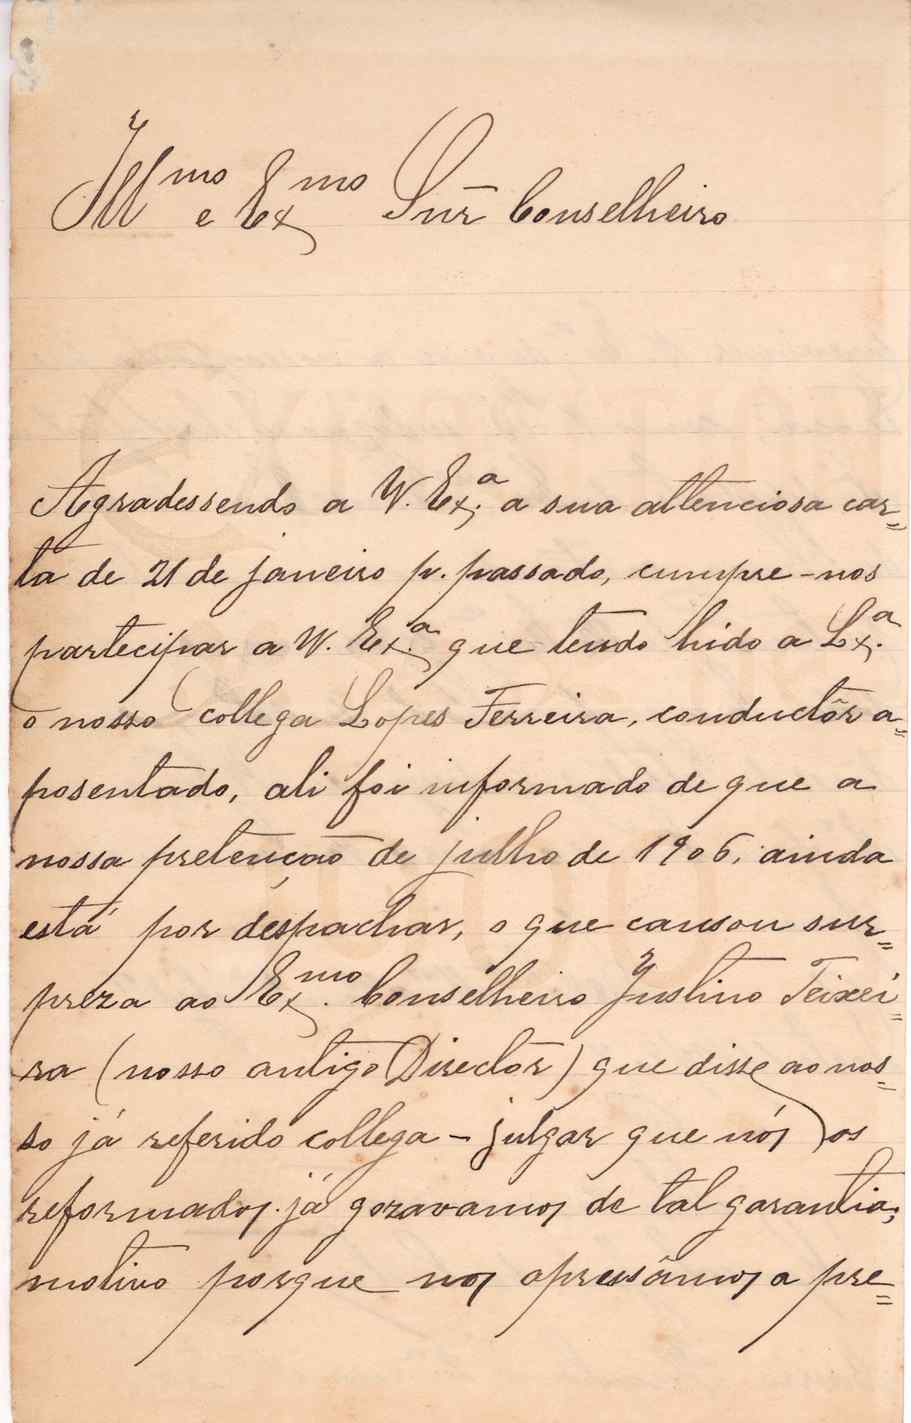 Illmo e Exmo Snr Conselheiro
Agradessendo a V. Ex.a a sua attenciosa car=
ta de 21 de janeiro p. passado, cumpre-nos
partecipar a V. Ex.a que tendo hido a Lx.a
o nosso collega Lopes Ferreira, conductôr a=
posentado, ali foi informado de que a
nossa pretenção de julho de 1906, ainda
está por despachar, o que causou sur=
preza ao Exmo. Conselheiro Justino Teixei=
ra (nosso antigo Directôr) que disse ao nos=
so já referido collega - julgar que nós os
reformados já gozavamos de tal garantia;
motivo porque nos apressâmos a pre=